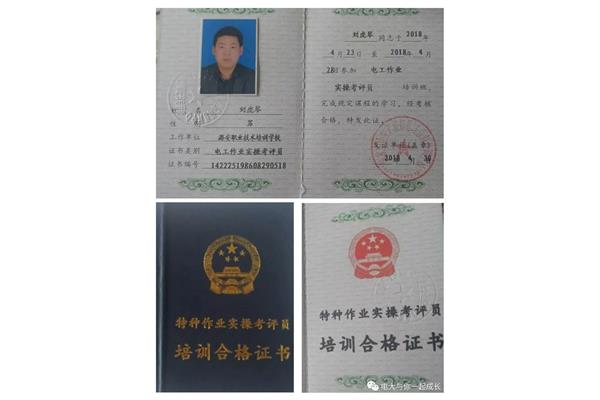 姓 名 刘虎琴
性 别 男
工作单位 潞安职业技术培训学校
证书类别 电工作业实操考评员
证书编号 142225198608290518
刘虎琴 同志于 2018年
4月23日 至 2018年4月
28日参加 电工作业
实操考评员 培训班，
完成规定课程的学习，经考核
合格，特发此证。
发证单位(盖章)
2018 4 30
特种作业实操考评员
培训合格证书
特种作业实操考评员
培训合格证书
电大与你一起成长